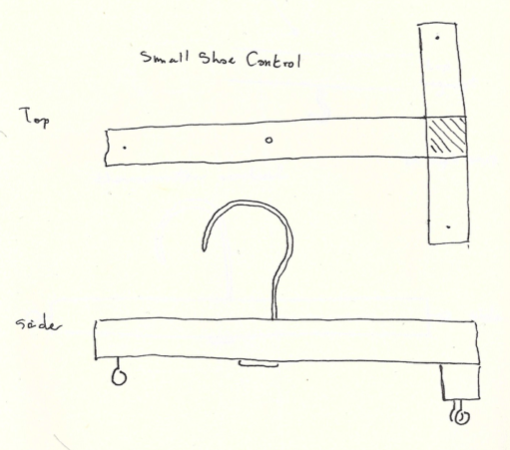 Small Shoe Control
Top
side